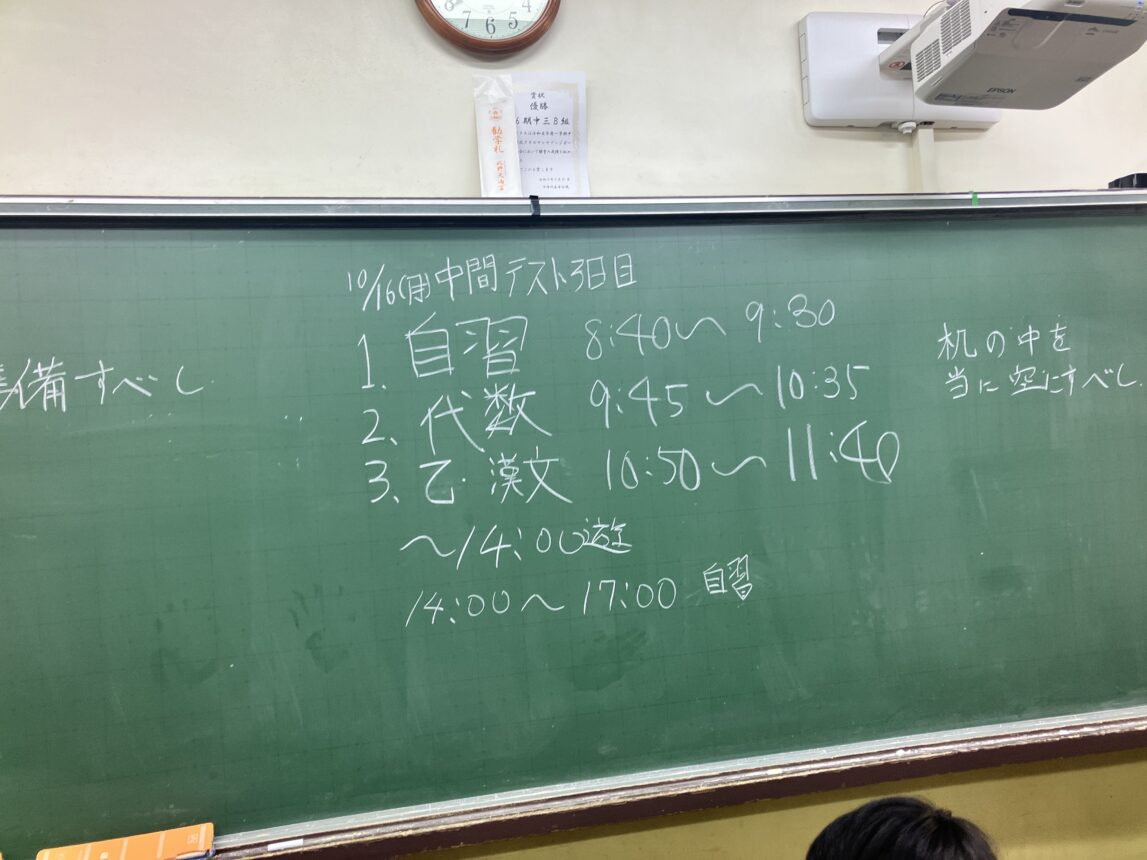 8 7 6 5 4
賞状
優勝
期中三B組
勧学札
北野天満宮
EPSON
10/16(月)中間テスト3日目
1. 自習 8:40〜9:30
2、代数 9:45〜10:35
3、乙・漢文 10:50〜11:40
〜14:00遊
14:00〜17:00 自習
準備すべし
机の中を
当に空にすべし